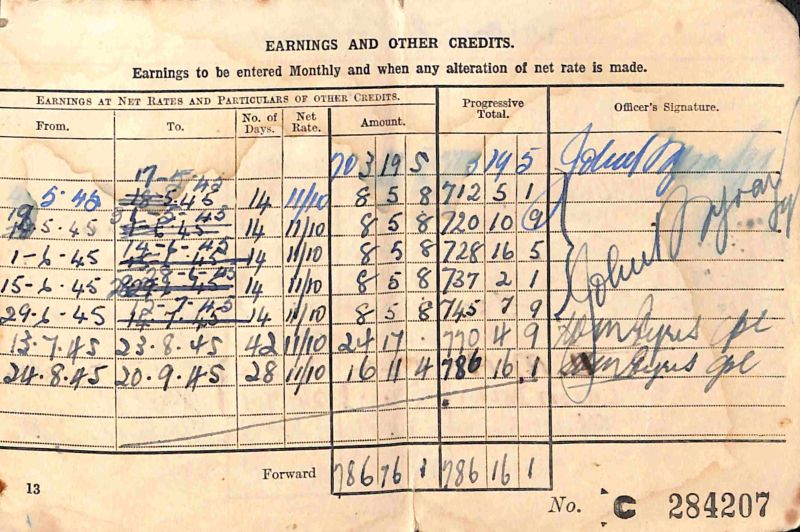 EARNINGS AND OTHER CREDITS.
Earnings to be entered Monthly and when any alteration of net rate is made.
EARNINGS AT NET RATES AND PARTICULARS OF OTHER CREDITS.
From. To. No. of Days. Net Rate. Amount. Progressive Total. Officer's Signature.
703 19 5
17-5-45
5.45 18.5.45 14 11/10 8 5 8 712 5 1
5.45 14 11/10 8 5 8 720 10 9
1-6-45 14-6-45 14 11/10 8 5 8 728 16 5
15-6-45 28-6-45 14 11/10 8 5 8 737 2 1
29-6-45 14 11/10 8 5 8 745 7 9
13.7.45 23.8.45 42 11/10 24 17 . 770 4 9
24.8.45 20.9.45 28 11/10 16 11 4 786 16 1
Forward 786 16 1 786 16 1
13
No. C 284207